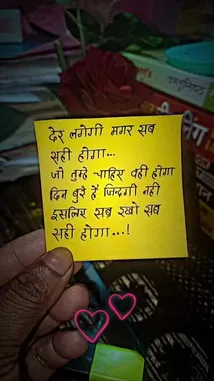 देर लगेगी मगर सब
सही होगा...
जो तुम्हे चाहिए वही होगा
दिन बुरे हैं जिन्दगी नही
इसलिए सब्र रखो सब
सही होगा...!